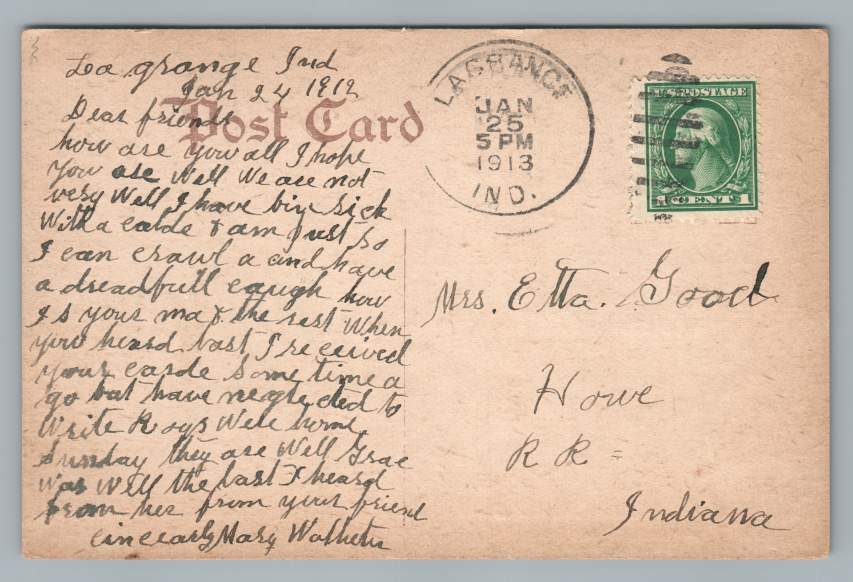 La grange Ind
Jan 24 1912
Post Card
Dear friends
how are you all I hope
you are Well We are not
very Well I have bin sick
With a calde & am just so
I can crawl a and have
a dreadfull caugh how
is your ma & the rest When
you heard last I received
your carde some time a
go but have neglected to
Write Roys Were home
Sunday they are Well Grace
Was Well the last I heard
from her from your friend
Mary
LAGRANGE
JAN
25
5 PM
1913
IND.
U.S. POSTAGE
CENT 1
Mrs. Etta. Good
Howe
R R =
Indiana